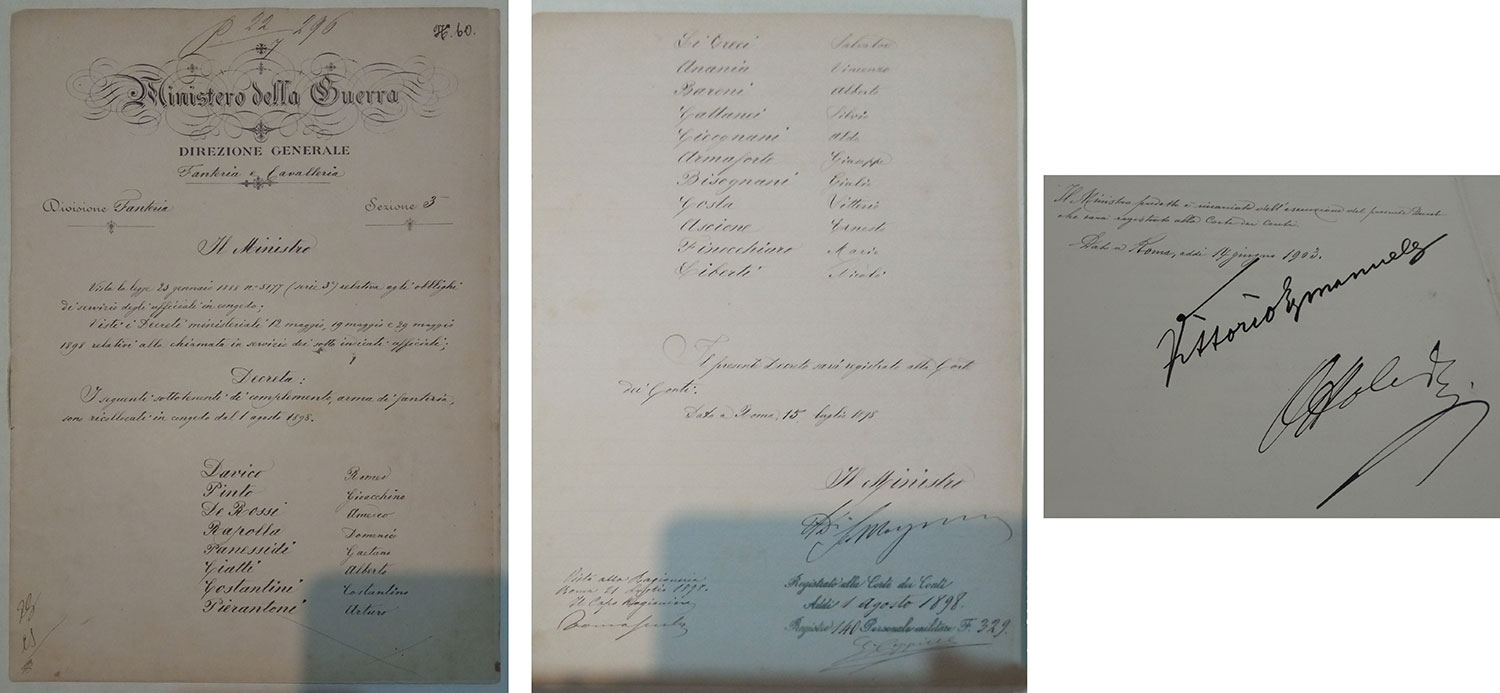 22 296
N. 60.
Ministero della Guerra
DIREZIONE GENERALE
Fanteria e Cavalleria
Divisione Fanteria Sezione 3ª
Il Ministro
Vista la legge 23 gennaio 1888 n. 5177 (serie 3ª) relativa agli obblighi
di servizio degli ufficiali in congedo;
Visti i Decreti ministeriali 12 maggio, 19 maggio e 29 maggio
1898 relativi alla chiamata in servizio dei sotto indicati ufficiali;
Decreta:
I seguenti sottotenenti di complemento, arma di fanteria,
sono ricollocati in congedo dal 1 agosto 1898.
Davico Romeo
Pinto Gioacchino
De Rossi Americo
Rapolla Domenico
Panessidi Gaetano
Giatti Alberto
Costantini Costantino
Pierantoni Arturo
Li Greci Salvatore
Anania Vincenzo
Baroni Alberto
Cattanei Silvio
Cicognani Aldo
Armaforte Giuseppe
Bisognani Giulio
Costa Vittorio
Ascione Ernesto
Finocchiaro Mario
Ciberti
Il presente Decreto sarà registrato alla Corte
dei Conti.
Dato a Roma, 15 luglio 1898
Il Ministro
Di S. Marzano
Visto alla Ragioneria
Roma 21 Luglio 1898.
Il Capo Ragioniere
Registrato alla Corte dei Conti
Addì 1 Agosto 1898.
Registro 140 Personale militare F. 329.
Il Ministro predetto è incaricato dell'esecuzione del presente Decreto
che sarà registrato alla Corte dei Conti.
Dato a Roma, addì 14 giugno 1903.
Vittorio Emanuele